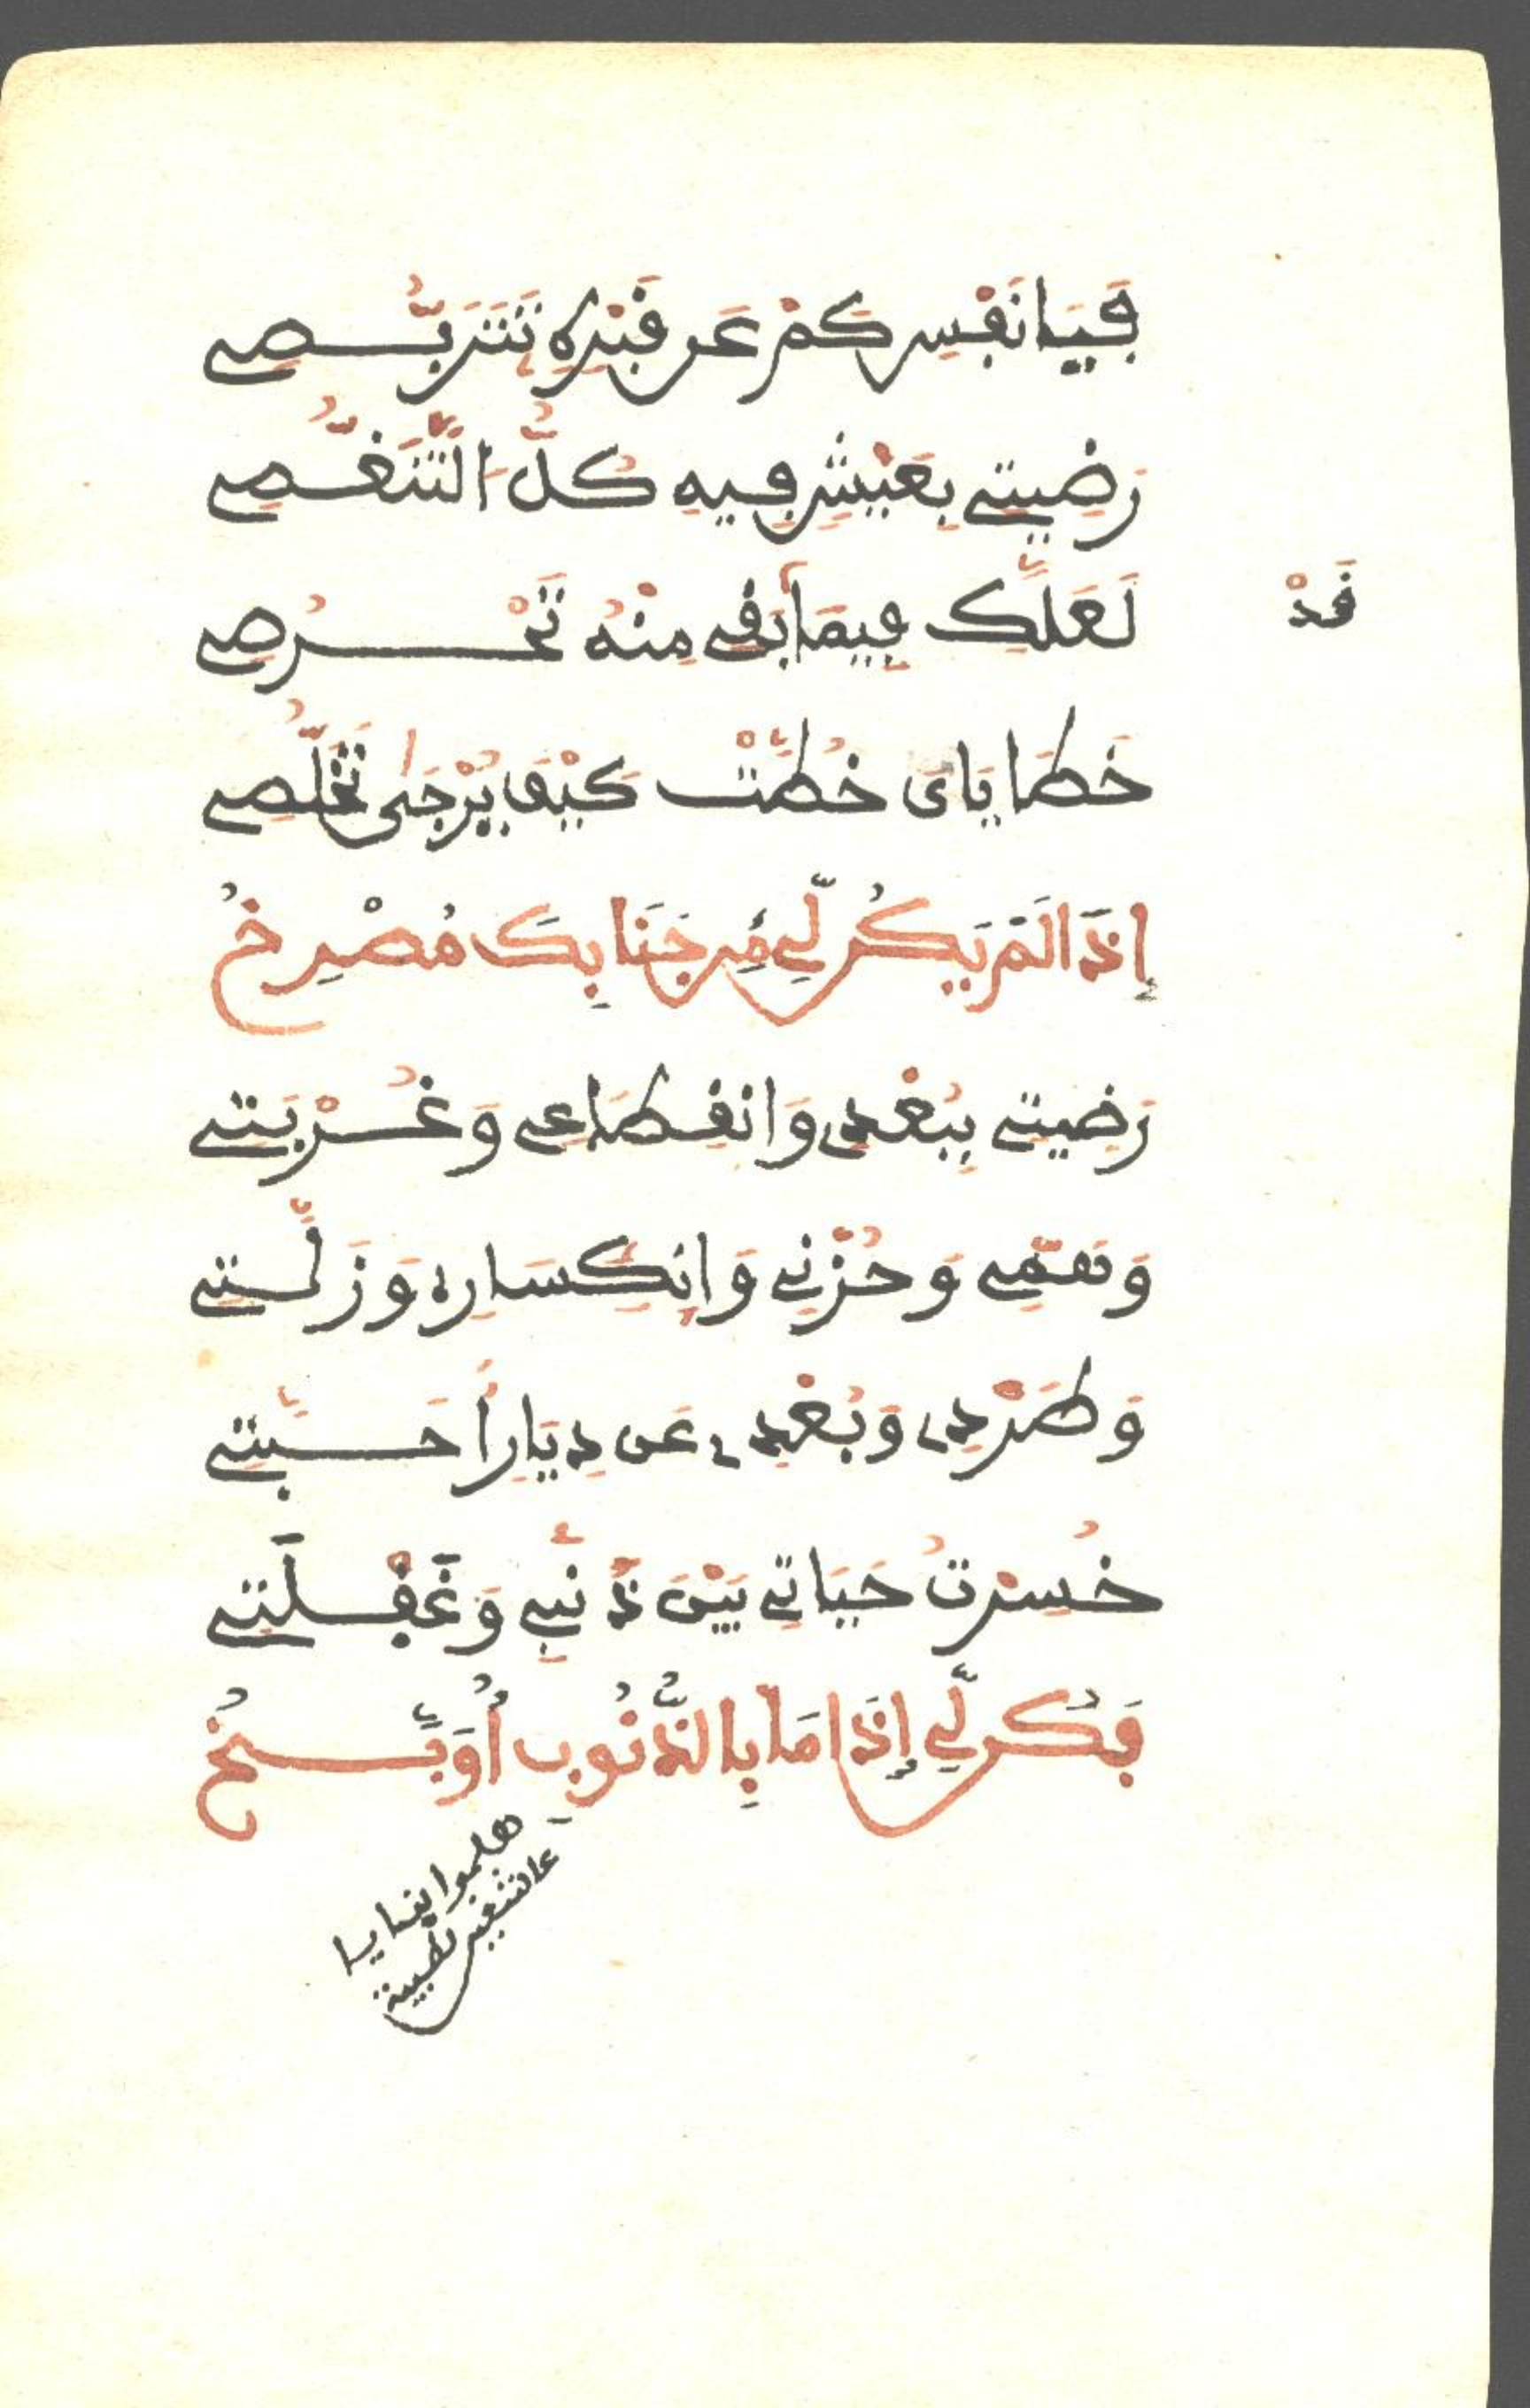 فَيَا نَفْسِ كَمْ عَن قَبْرِهِ تَتَرَبَّصِي
رَضِيتِي بِعَيْشٍ فِيهِ كُلُّ التَّنَغُّصِي
لَعَلَّكِ فِيمَا بَقِي مِنْهُ تَحْرُصِي
قَدْ
خَطَايَايَ خُطَّتْ كَيْفَ يُرْجَى تَخَلُّصِي
إِذَا لَمْ يَكُن لِّي مِن جَنَابِكَ مُصْرِخُ
رَضِيتِي بِبُعْدِي وَانقِطَاعِي وَغُرْبَتِي
وَهَمِّي وَحُزْنِي وَانكِسَارِي وَزَلَّتِي
وَطَرْدِي وَبُعْدِي عَن دِيَارِ أَحِبَّتِي
خُسِرْتُ حَيَاتِي بَيْنَ ذَنْبِي وَغَفْلَتِي
فَكُن لِّي إِذَا مَا بِالذُّنُوبِ أُوَبَّخُ
هلموا بنا يا
عاشقين طيبة